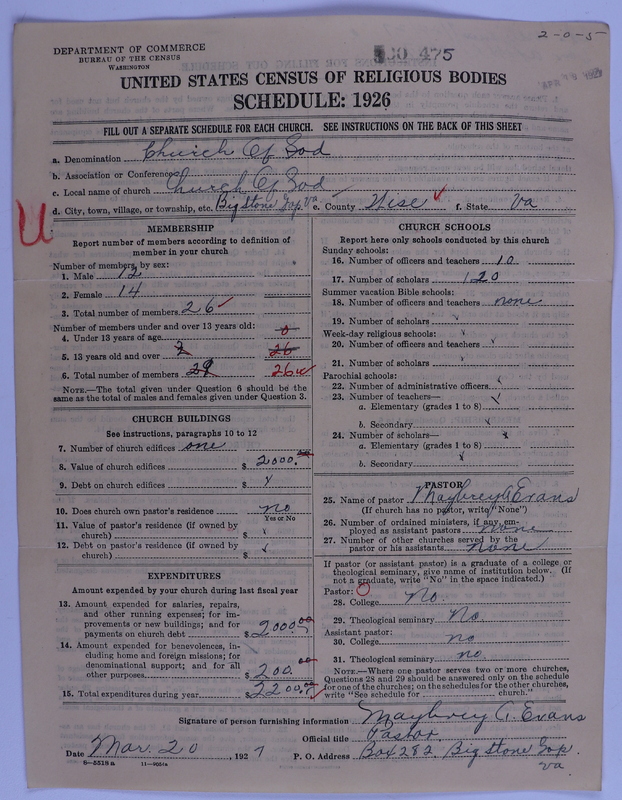 2-0-5
DEPARTMENT OF COMMERCE
BUREAU OF THE CENSUS
WASHINGTON
475
UNITED STATES CENSUS OF RELIGIOUS BODIES
SCHEDULE: 1926
FILL OUT A SEPARATE SCHEDULE FOR EACH CHURCH. SEE INSTRUCTIONS ON THE BACK OF THIS SHEET
a. Denomination Church Of God
b. Association or Conference
c. Local name of church Church Of God
d. City, town, village, or township, etc. Big Stone Gap. Va e. County Wise f. State Va
U
MEMBERSHIP
Report number of members according to definition of
member in your church
Number of members by sex:
1. Male 12
2. Female 14
3. Total number of members 26
Number of members under and over 13 years old:
4. Under 13 years of age 0
5. 13 years old and over 2 26
6. Total number of members 29 26
NOTE.—The total given under Question 6 should be the
same as the total of males and females given under Question 3.
CHURCH BUILDINGS
See instructions, paragraphs 10 to 12
7. Number of church edifices one
8. Value of church edifices $ 2000.00
9. Debt on church edifices $
10. Does church own pastor's residence no
Yes or No
11. Value of pastor's residence (if owned by
church) $
12. Debt on pastor's residence (if owned by
church) $
EXPENDITURES
Amount expended by your church during last fiscal year
13. Amount expended for salaries, repairs,
and other running expenses; for im-
provements or new buildings; and for
payments on church debt $ 2000.00
14. Amount expended for benevolences, in-
cluding home and foreign missions; for
denominational support; and for all
other purposes 200.00
15. Total expenditures during year $ 2200.00
CHURCH SCHOOLS
Report here only schools conducted by this church
Sunday schools:
16. Number of officers and teachers 10
17. Number of scholars 120
Summer vacation Bible schools:
18. Number of officers and teachers none
19. Number of scholars
Week-day religious schools:
20. Number of officers and teachers
21. Number of scholars
Parochial schools:
22. Number of administrative officers
23. Number of teachers—
a. Elementary (grades 1 to 8)
b. Secondary
24. Number of scholars—
a. Elementary (grades 1 to 8)
b. Secondary
PASTOR
25. Name of pastor Maybrey A Evans
(If church has no pastor, write "None")
26. Number of ordained ministers, if any, em-
ployed as assistant pastors none
27. Number of other churches served by the
pastor or his assistants none
If pastor (or assistant pastor) is a graduate of a college or
theological seminary, give name of institution below. (If
not a graduate, write "No" in the space indicated.)
Pastor:
28. College No
29. Theological seminary No
Assistant pastor:
30. College no
31. Theological seminary no
NOTE.—Where one pastor serves two or more churches,
Questions 28 and 29 should be answered only on the schedule
for one of the churches; on the schedules for the other churches,
write "See schedule for church."
Signature of person furnishing information Maybrey A. Evans
Official title Pastor
Date Mar. 20, 1927 P. O. Address Box 282 Big Stone Gap.
Va
8—5518a 11—9051a